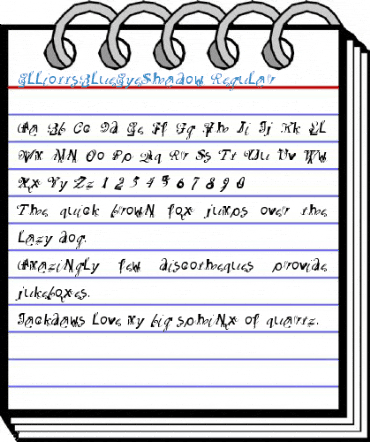 ElliottsBlueEyeShadow Regular
Aa Bb Cc Dd Ee Ff Gg Hh Ii Jj Kk Ll
Mm Nn Oo Pp Qq Rr Ss Tt Uu Vv Ww
Xx Yy Zz 1 2 3 4 5 6 7 8 9 0
The quick brown fox jumps over the
lazy dog.
Amazingly few discotheques provide
jukeboxes.
Jackdaws love my big sphinx of quartz.